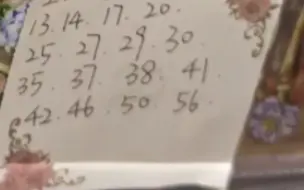 13. 14. 17. 20.
25. 27. 29. 30.
35. 37. 38. 41.
42. 46. 50. 56.